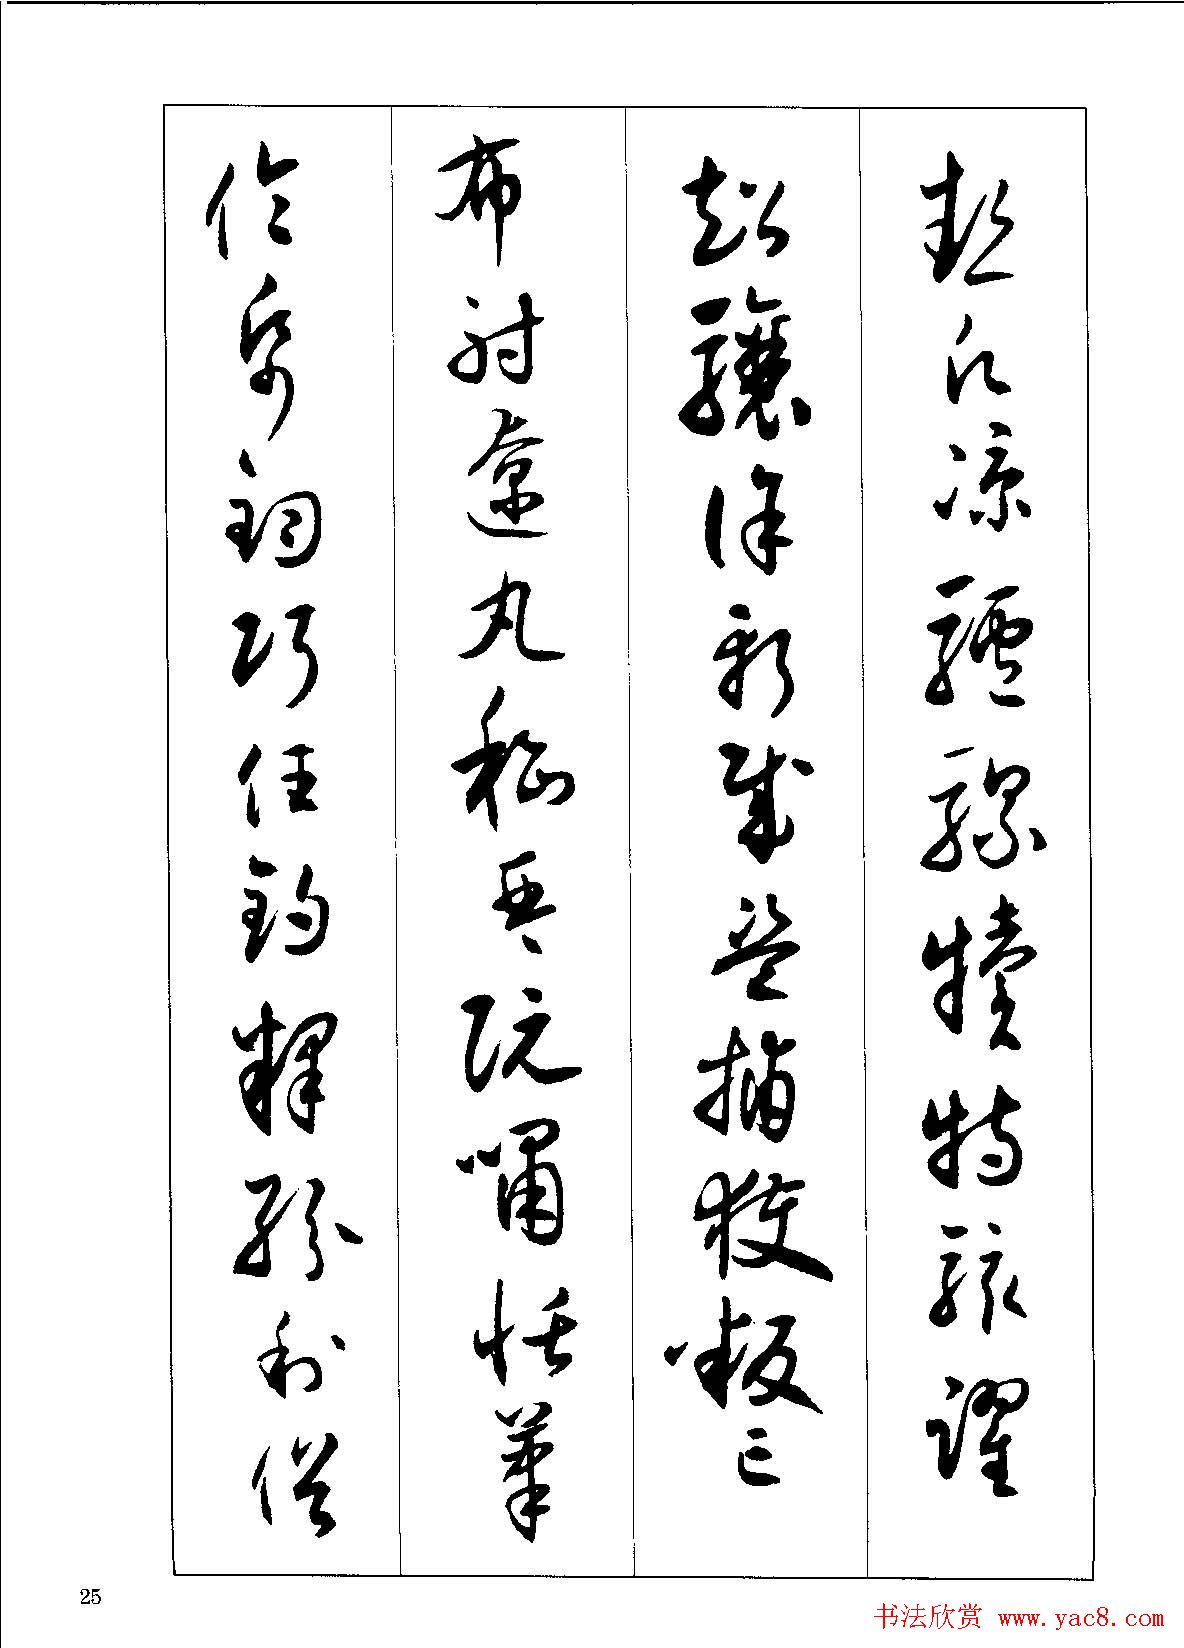 熱願涼驢騾犢特駭躍
超驤誅斬賊盜捕獲叛亡
布射遼丸嵇琴阮嘯恬筆
倫紙鈞巧任釣釋紛利俗
25
书法欣赏 www.yac8.com